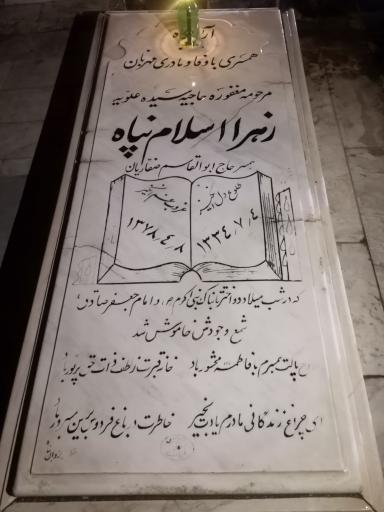 همسری باوفا و مادری مهربان
مرحومه مغفوره حاجیه سیده علویه
زهرا اسلام پناه
همسر حاج ابوالقاسم صفاریان
طلوع دل انگیز
۱۳۳۴٫۷٫۴
غروب غم انگیز
۱۳۷۸٫۴٫۸
که در شب میلاد دو اختر تابناک نبی اکرم ص و امام جعفر صادق ع
شمع وجودش خاموش شد
پاکت پیمبرم با فاطمه محشور باد خانه قبرت ز لطف ذات حق پرنور باد
ای چراغ زندگانی مادرم یادت بخیر خاطرت در باغ فردوس برین مسرور باد